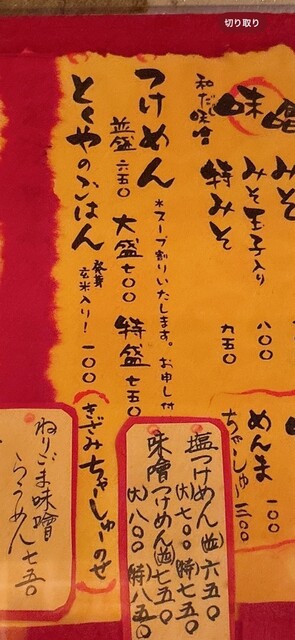 切り取り
味
和だし味噌
みそ
みそ玉子入り 八〇〇
特みそ 九五〇
つけめん
*スープ割りいたします。お申し付
並盛 六五〇 大盛 七〇〇 特盛 七五〇
とくやのごはん
発芽玄米入り! 一〇〇
きざみちゃーしゅーのせ
めんま 一〇〇
ちゃーしゅー 三〇〇
塩つけめん(並)六五〇
(大)七〇〇(特)七五〇
味噌つけめん(並)七五〇
(大)八〇〇(特)八五〇
ねりごま味噌
らうめん 七五〇